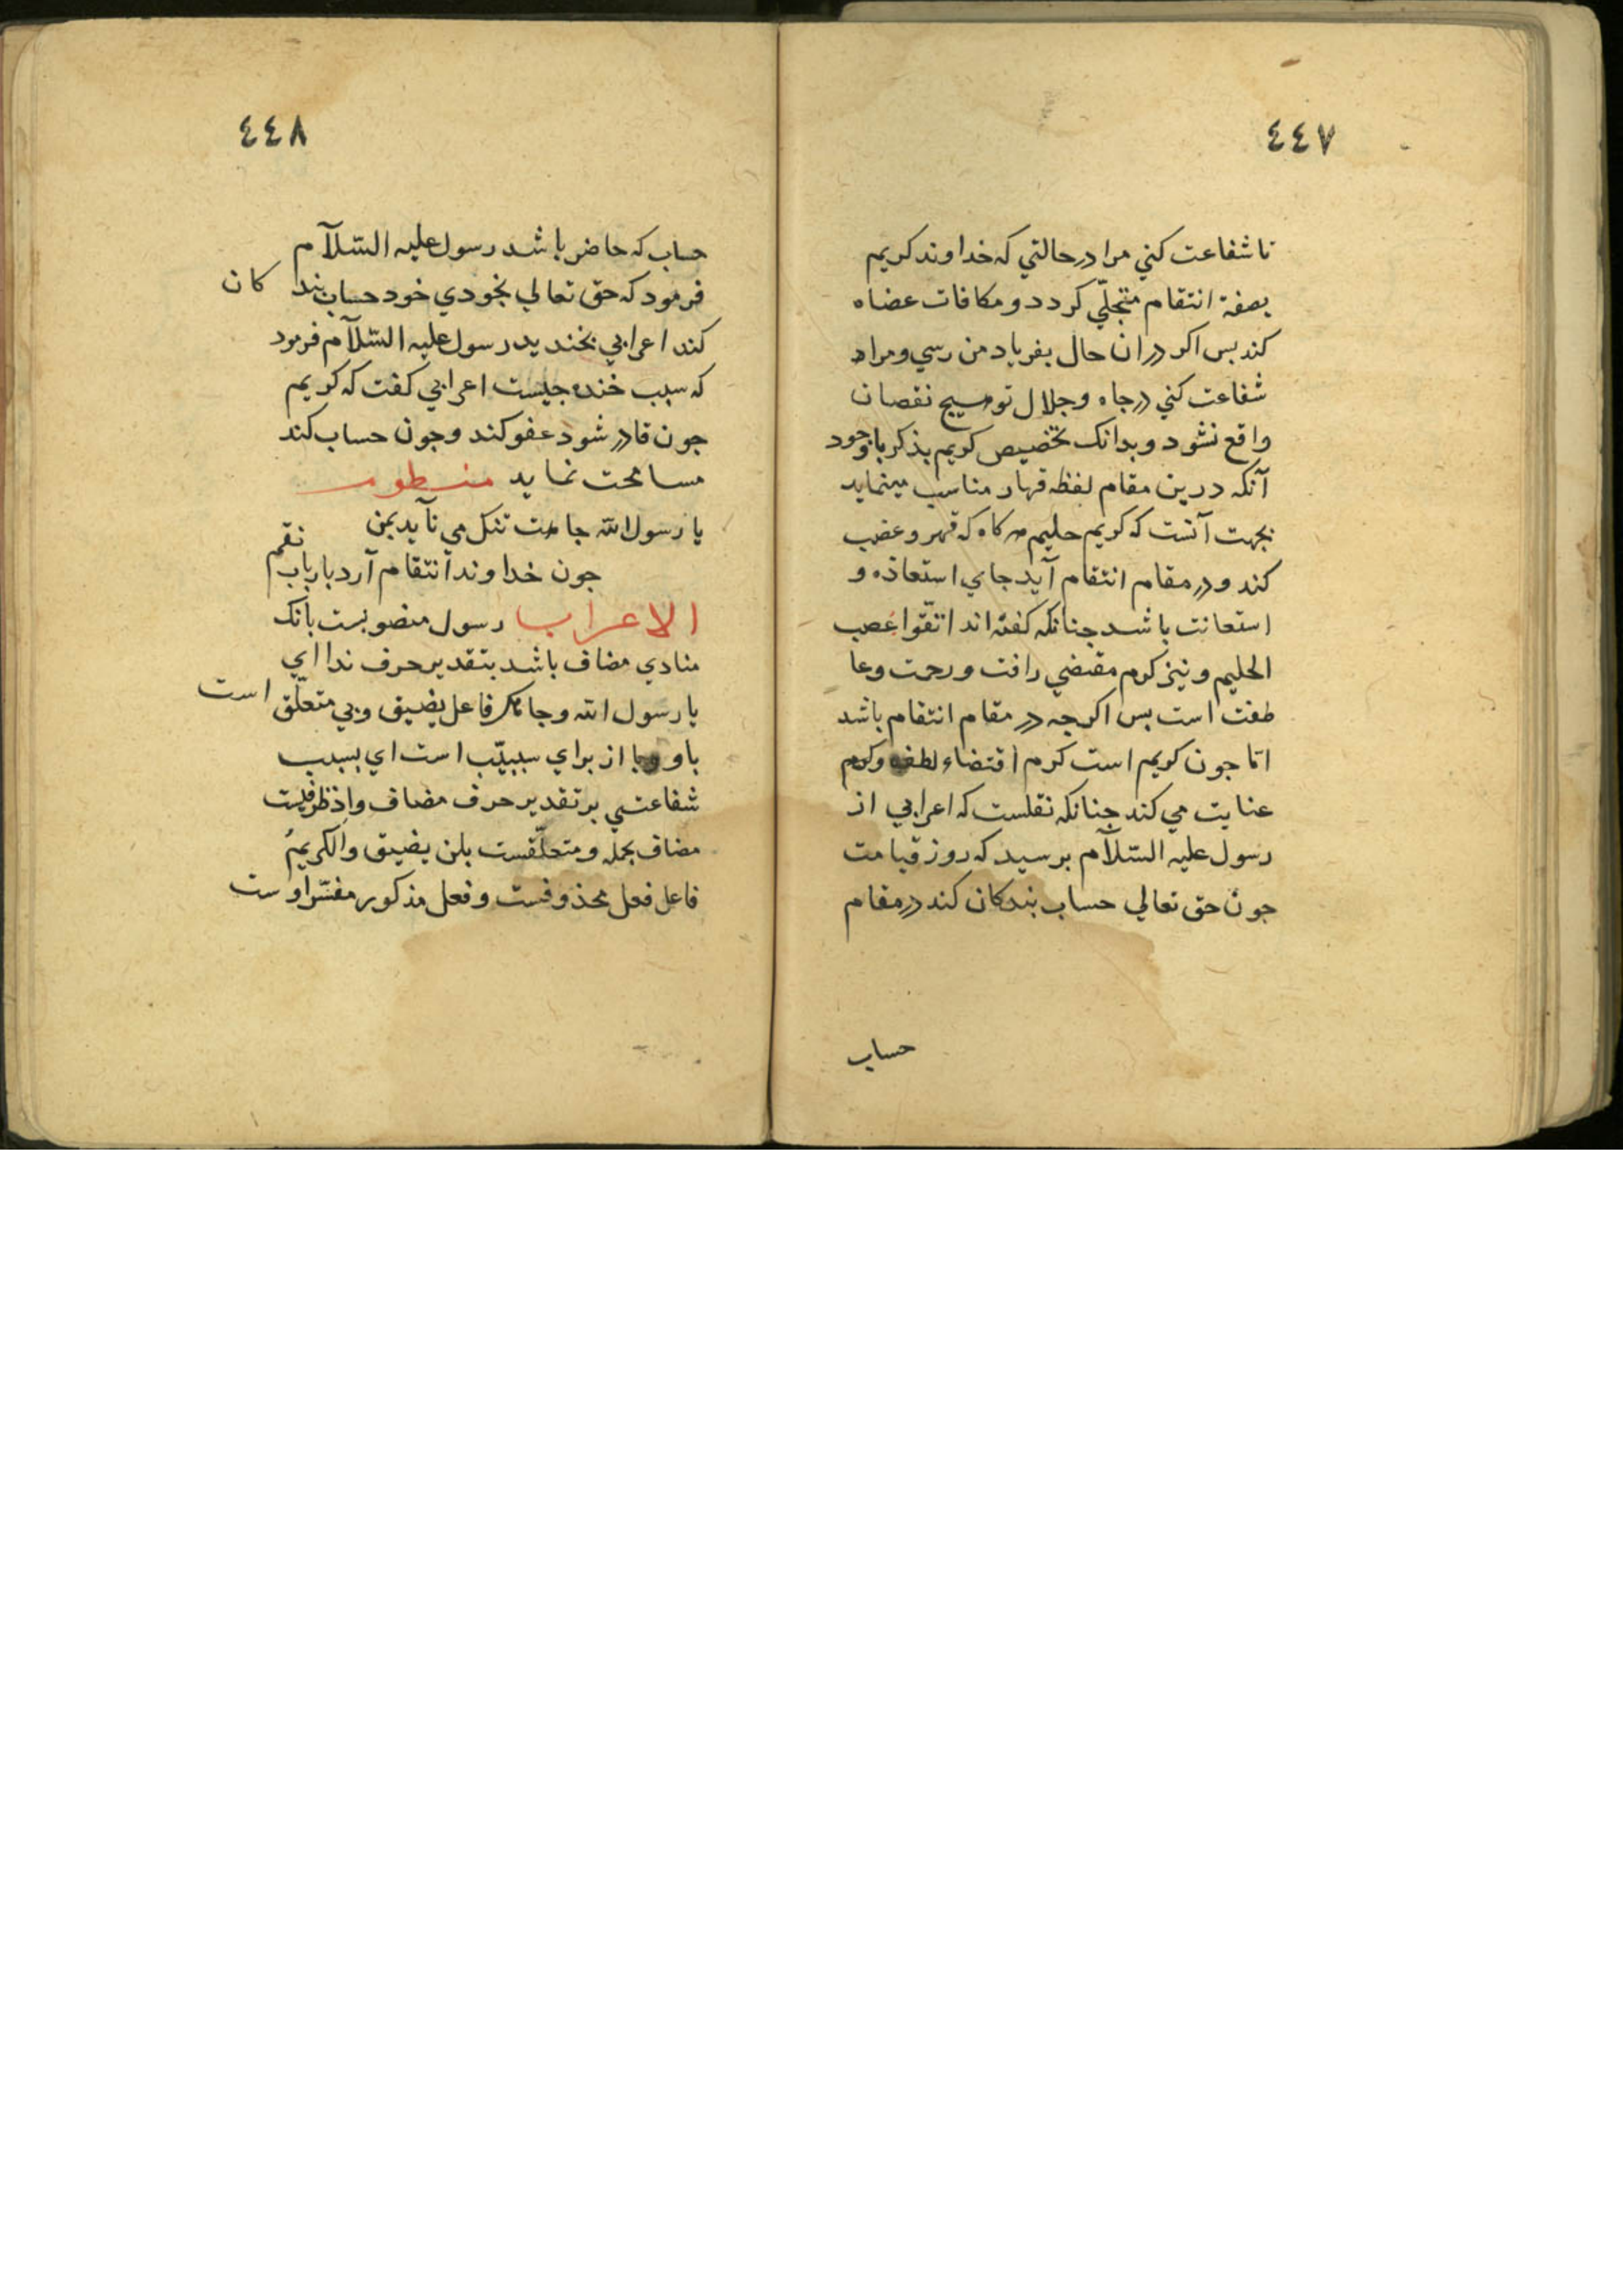 ٤٤٧
تا شفاعت كني مرا در حالتي كه خداوند كريم
بصفة انتقام متجلّي كردد و مكافات عضاه
كند بس اكر دران حال بفرياد من رسي و مراد
شفاعت كني در جاه و جلال تو هيچ نقصان
واقع نشود و بدانك تخصيص كريم بذكر با وجود
آنكه درين مقام لفظ قهار مناسب مينمايد
بجهت آنست كه كريم حليم هر كاه كه قهر و غضب
كند و در مقام انتقام آيد جاي استعاذه و
استعانت باشد جنانكه كفته اند اتقّوا غضب
الحليم و نيز كرم مقتضي رافت و رحمت و عا
طفت است بس اكرجه در مقام انتقام باشد
امّا جون كريم است كرم اقتضاء لطف و كرم
عنايت مي كند جنانكه نقلست كه اعرابي از
رسول عليه السّلآم برسيد كه روز قيامت
جون حق تعالي حساب بندكان كند در مقام
حساب
٤٤٨
حساب كه حاضر باشد رسول عليه السّلآم
فرمود كه حق تعالي بخودي خود حساب بند كان
كند اعرابي بخنديد رسول عليه السّلآم فرمود
كه سبب خنده جيست اعرابي كفت كه كريم
جون قادر شود عفو كند و جون حساب كند
مسامحت نمايد منظوم
يا رسول الله جاهت تنك مي نآيد بمن
جون خداوند انتقام آرد بارباب نقم
الاعراب رسول منصوبست بانك
منادي مضاف باشد بتقدير حرف ندا اي
يا رسول الله و جاهك فاعل يضيق و بي متعلّق است
باو و با از براي سببيّت است اي بسبب
شفاعتي بر تقدير حرف مضاف و اذ ظرفيست
مضاف بجمله و متعلّقست بلن يضيق و الكريمُ
فاعل فعل محذوفست و فعل مذكور مفسّر اوست